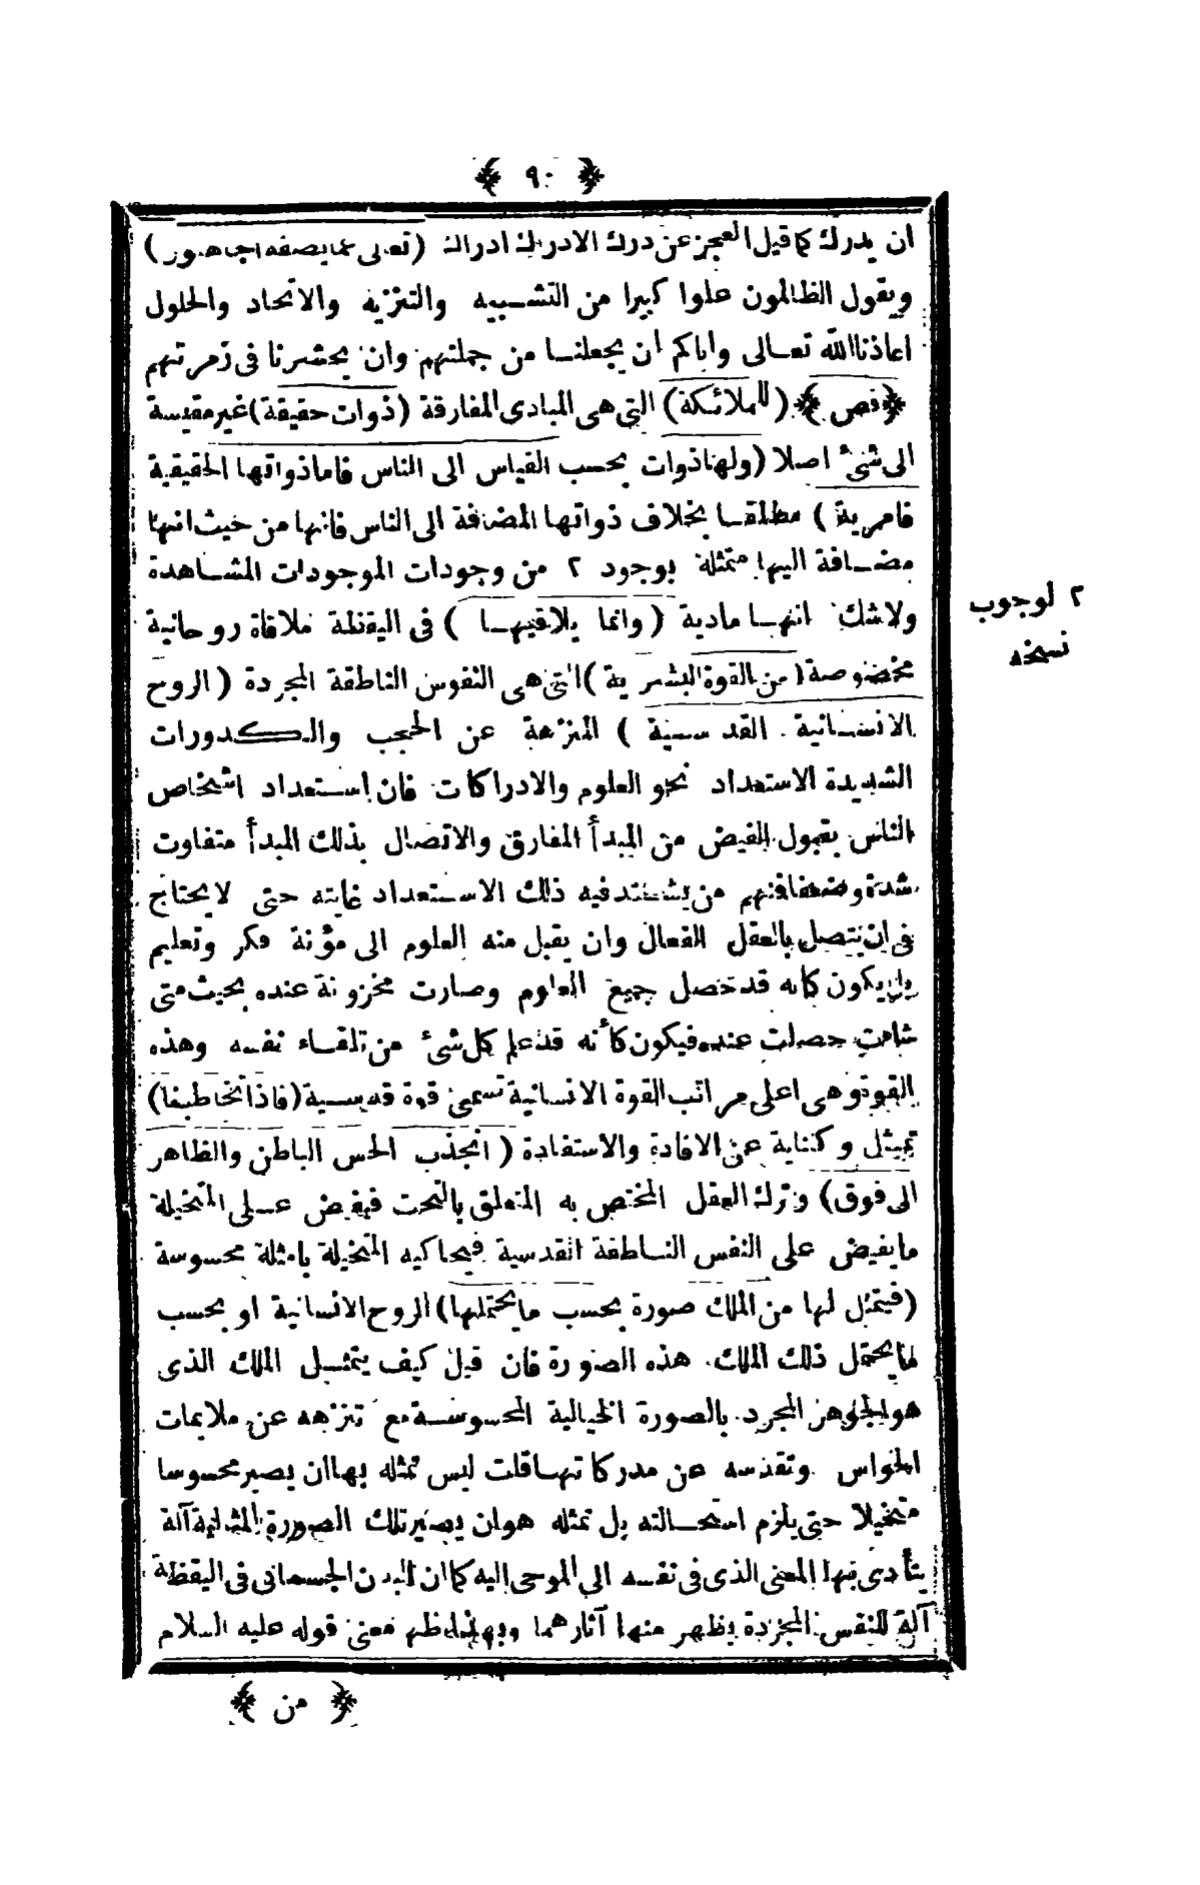 ﴿ ٩٠ ﴾
ان يدرك كما قيل العجز عن درك الادراك ادراك (تعالى عما يصفه الجاهلون)
ويقول الظالمون علوا كبيرا من التشبيه والتنزيه والاتحاد والحلول
اعاذنا الله تعالى واياكم ان يجعلنا من جملتهم وان يحشرنا فى زمرتهم
﴿فص﴾ (للملائكة) التى هى المبادى المفارقة (ذوات حقيقة) غير مقيسة
الى شئ اصلا (ولها ذوات بحسب القياس الى الناس فاما ذواتها الحقيقية
فامرية) مطلقا بخلاف ذواتها المضافة الى الناس فانها من حيث انها
مضافة اليها متمثلة بوجود ٢ من وجودات الموجودات المشاهدة
ولاشك انها مادية (وانما يلاقيها) فى اليقظة ملاقاة روحانية
مخصوصة (من القوة البشرية) التى هى النفوس الناطقة المجردة (الروح
الانسانية القدسية) المنزهة عن الحجب والكدورات
الشديدة الاستعداد نحو العلوم والادراكات فان استعداد اشخاص
الناس بقبول الفيض من المبدأ المفارق والاتصال بذلك المبدأ متفاوت
شدة وضعفا فمنهم من يشتد فيه ذلك الاستعداد غايته حتى لا يحتاج
فى ان يتصل بالعقل الفعال وان يقبل منه العلوم الى مؤنة فكر وتعليم
بل يكون كانه قد حصل جميع العلوم وصارت مخزونة عنده بحيث متى
شاءت حصلت عنده فيكون كأنه قد علم كل شئ من تلقاء نفسه وهذه
القوة وهى اعلى مراتب القوة الانسانية تسمى قوة قدسية (فاذا تخاطبتا)
تمثيل وكناية عن الافادة والاستفادة (انجذب الحس الباطن والظاهر
الى فوق) وترك العقل المختص به المتعلق بالتحت فيفيض على المتخيلة
ما يفيض على النفس الناطقة القدسية فيحاكيه المتخيلة بامثلة محسوسة
(فيتمثل لها من الملك صورة بحسب ما يحتملها) الروح الانسانية او بحسب
ما يحتمل ذلك الملك هذه الصورة فان قيل كيف يتمثل الملك الذى
هو الجوهر المجرد بالصورة الخيالية المحسوسة مع تنزهه عن ملابمات
الحواس وتقدسه عن مدركاتها قلت ليس تمثله بها ان يصير محسوسا
متخيلا حتى يلزم استحالته بل تمثله هو ان يصير تلك الصورة المثالية آلة
يتأدى بها المعنى الذى فى نفسه الى الموحى اليه كما ان البدن الجسمانى فى اليقظة
آلة للنفس المجردة يظهر منها آثارهما وبهذا ظهر معنى قوله عليه السلام
﴿ من ﴾
٢ لوجوب
نسخه